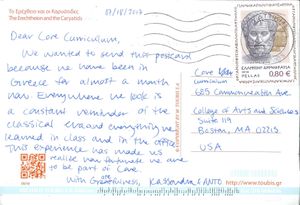 Το Ερέχθειο και οι Καρυάτιδες
The Erechtheion and the Caryatids
Dear Core Curriculum,
We wanted to send this postcard
because we have been in
Greece for almost a month
now. Everywhere we look is
a constant reminder of the
classical era and everything we
learned in class and in the office.
This experience has made us
realize how fortunate we are
to be part of Core.
With Gratefulness, Kassandra &
ΕΛΛΗΝΙΚΗ ΔΗΜΟΚΡΑΤΙΑ
HELLAS 0,80 €
Core
Curriculum
685 Commonwealth Ave
College of Arts and Sciences
Suite 119
Boston, MA 02215
USA
http://www.toubis.gr